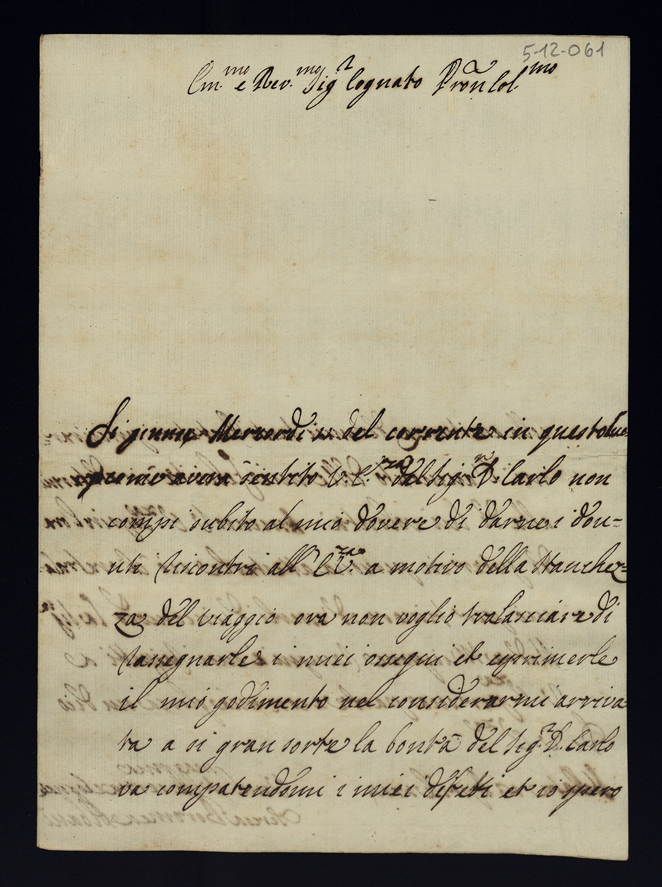 5-12-061
Em.mo e Rev.mo Sig.r Cognato Pron Col.mo
Si gionse Mercordi 11 del corrente in questo
come avera sentito V. E.za del Sig.r D. Carlo non
compi subito al mio dovere di darne i dou-
uti riscontri all' E.za V.a a motivo della stanchez-
za del viaggio ora non voglio tralasciare di
rassegnarle i miei ossequi et esprimerle
il mio godimento nel considerarmi arriva
ta a si gran sorte la bontà del Sig.r D. Carlo
va compatendomi i miei difetti et io spero